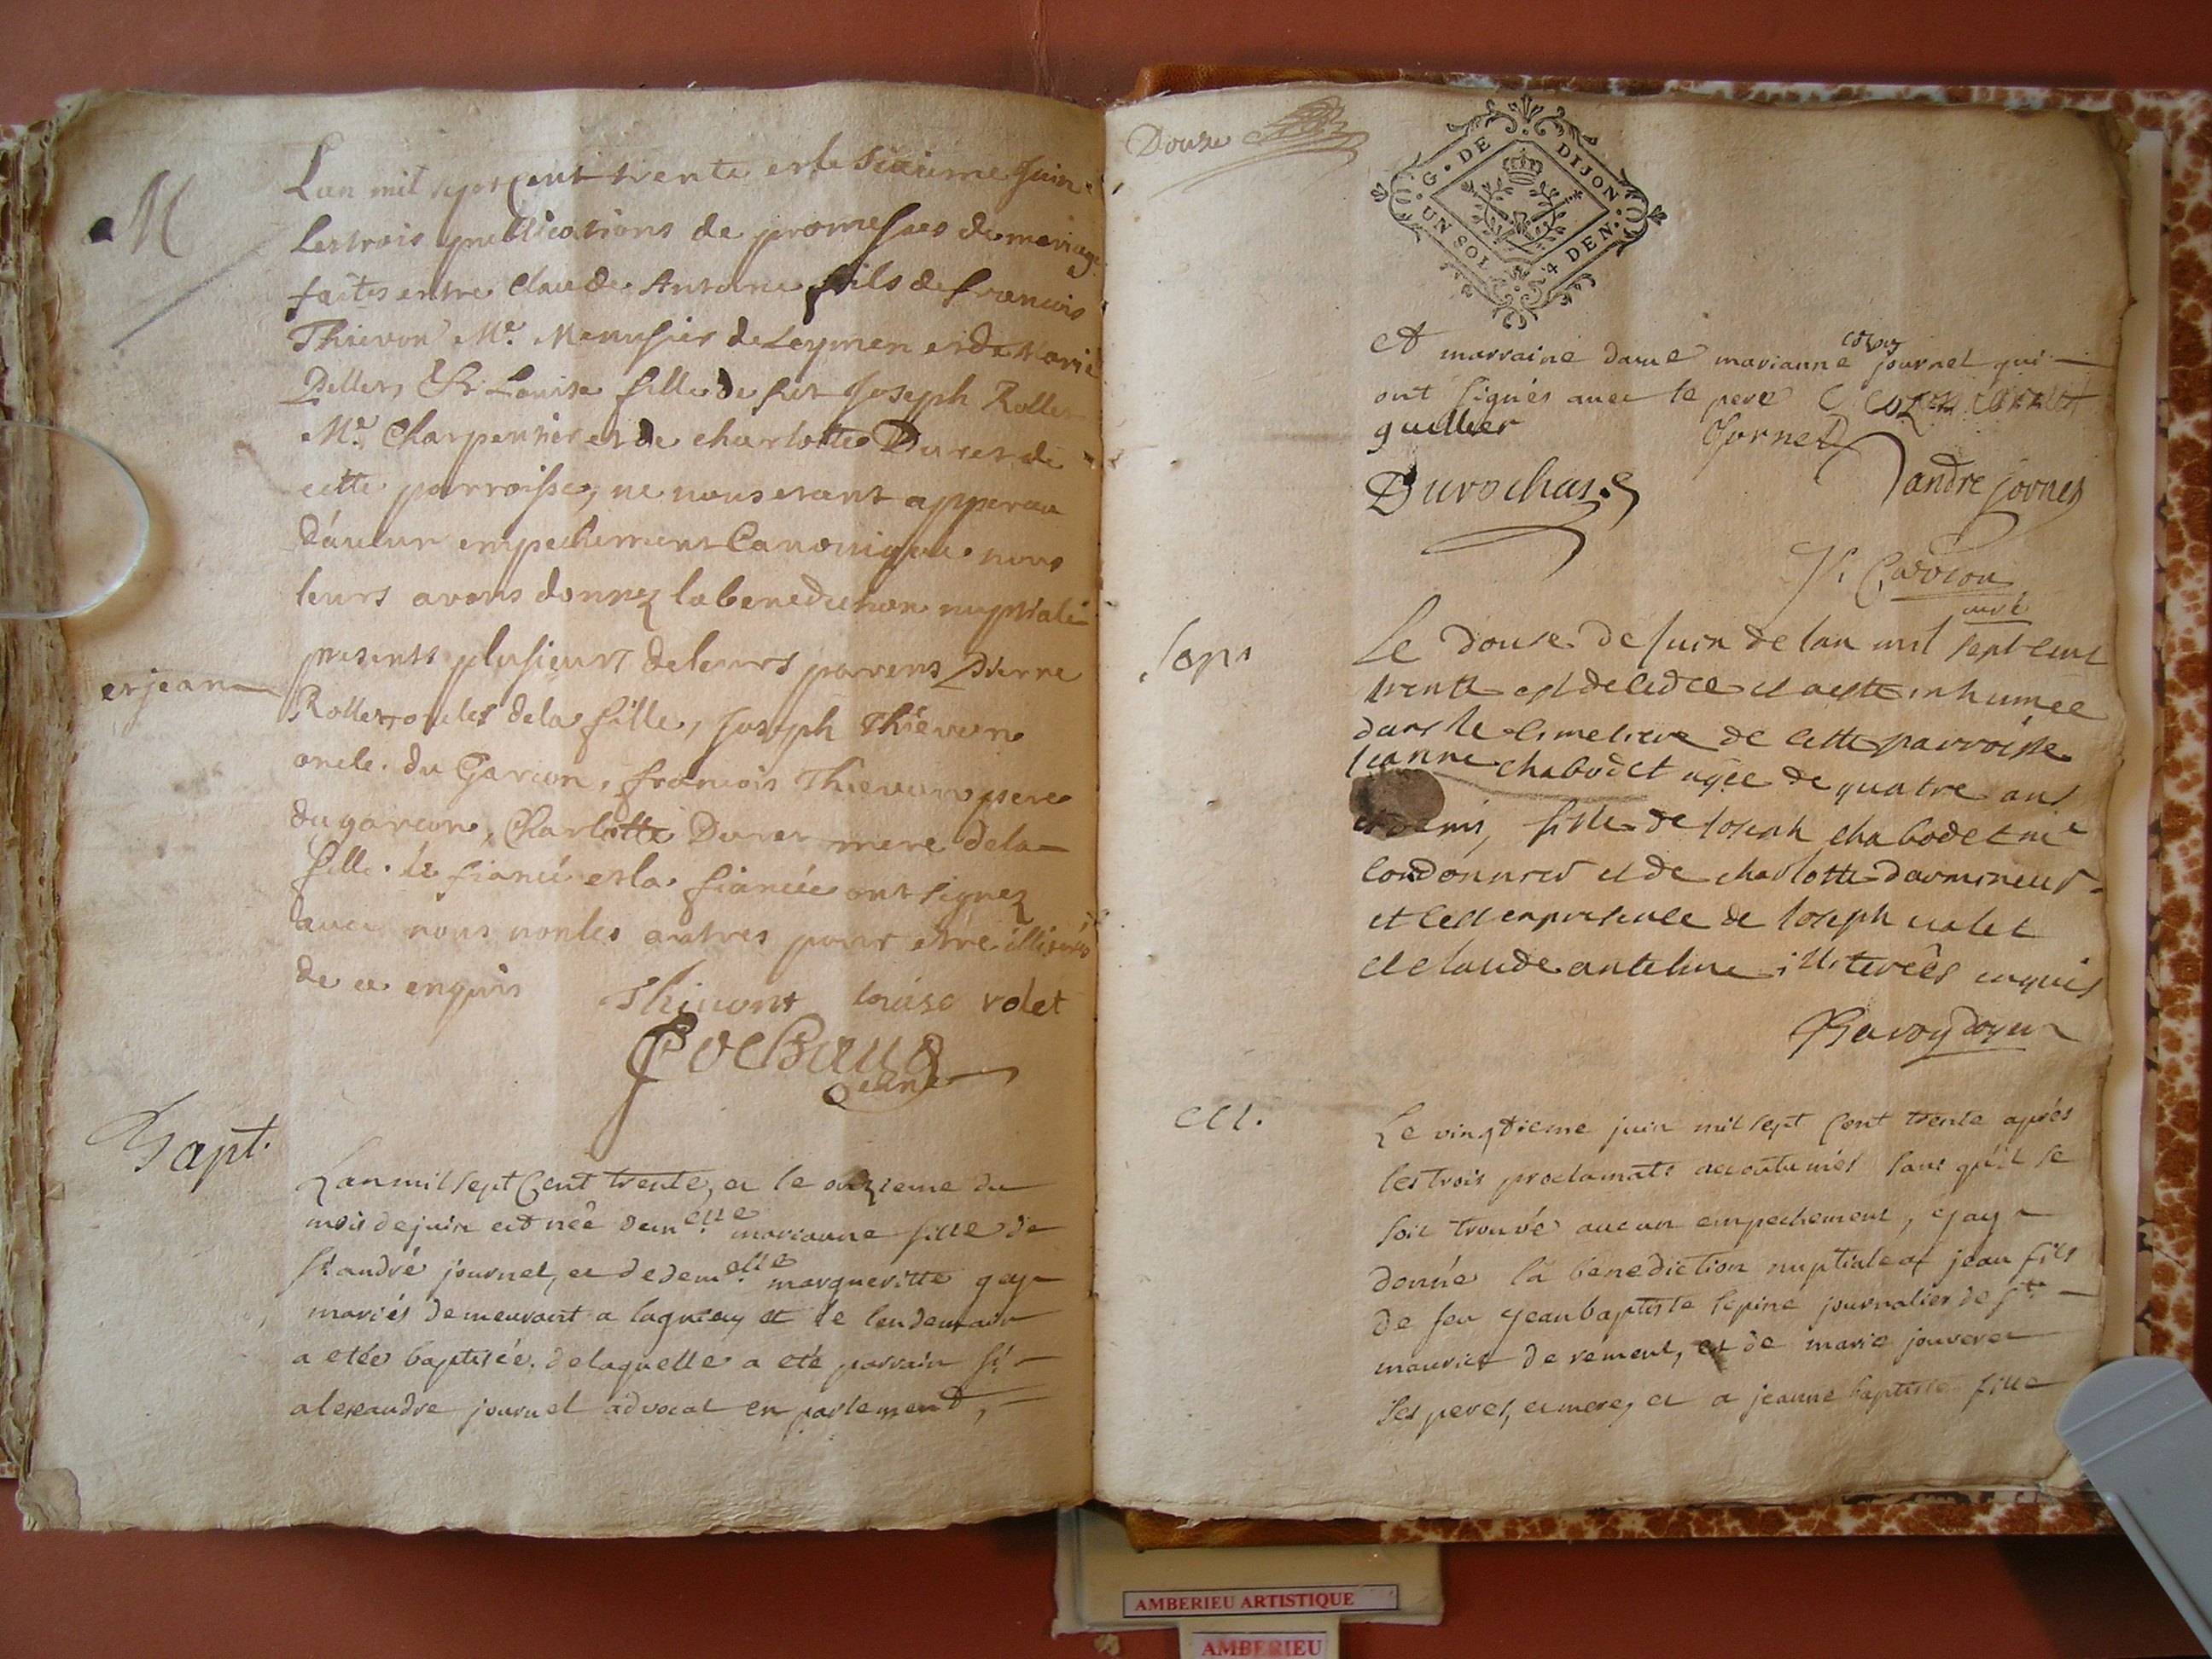 M
Lan mil sept Cent trente et le sixieme Juin
Les trois publications de promesses de mariage
faites entre Claude Antoine fils de francois
Thievon Me. Menusier de Leymen et de Marie
Pellet, & Louise fille de feu Joseph Rollet
Me. Charpentier et de charlotte Duret de
cette parroisse, ne nous etant appareu
d'aucun empechement Canonique nous
leurs avons donnez la benediction nuptiale
presents plusieurs de leurs parens Pierre
et jean
Rollet, oncles de la fille, Joseph Thievon
oncle du Garcon, francois Thievon pere
du garcon, Charlotte Duret mere de la
fille. le fiancé et la fiancée ont signez
avec nous non les autres pour etre illiterés
de ce enquis
Thievont louise rolet
Bapt.
Lan mil sept Cent trente, et le onzieme du
mois de juin est née demelle marianne fille de
sr andré journet, et de demelle margueritte gay
mariés demeurant a lagnieu et le lendemain
a etée baptisée. de laquelle a eté parrain sr
alexandre journet advocat en parlement,
Douze
G. DE DIJON
UN SOL 4 DEN.
Et marraine dame marianne cozon journet qui
ont signés avec le pere
guillier Jornet
Durochas andre jornet
Sep.
Le douse de Juin de lan mil sept cent
trente est decedee et a este inhumee
dans le cimetiere de cette parroisse
Jeanne chabodet agee de quatre ans
et demis, fille de Joseph chabodet me
Cordonnier et de charlotte darmineur
et ce en presence de Joseph valet
et claude antelme illiterées enquis
M.
Le vingtieme juin mil sept Cent trente aprés
les trois proclamats accoutumés sans qu'il se
soit trouvé aucun empechement, j'ay
donné la benediction nuptiale a jean fils
de feu jean baptiste lepine journalier de st
maurice de rement, et de marie jouvenet
ses peres, et mere, et a jeanne baptiste fille
AMBERIEU ARTISTIQUE
AMBERIEU